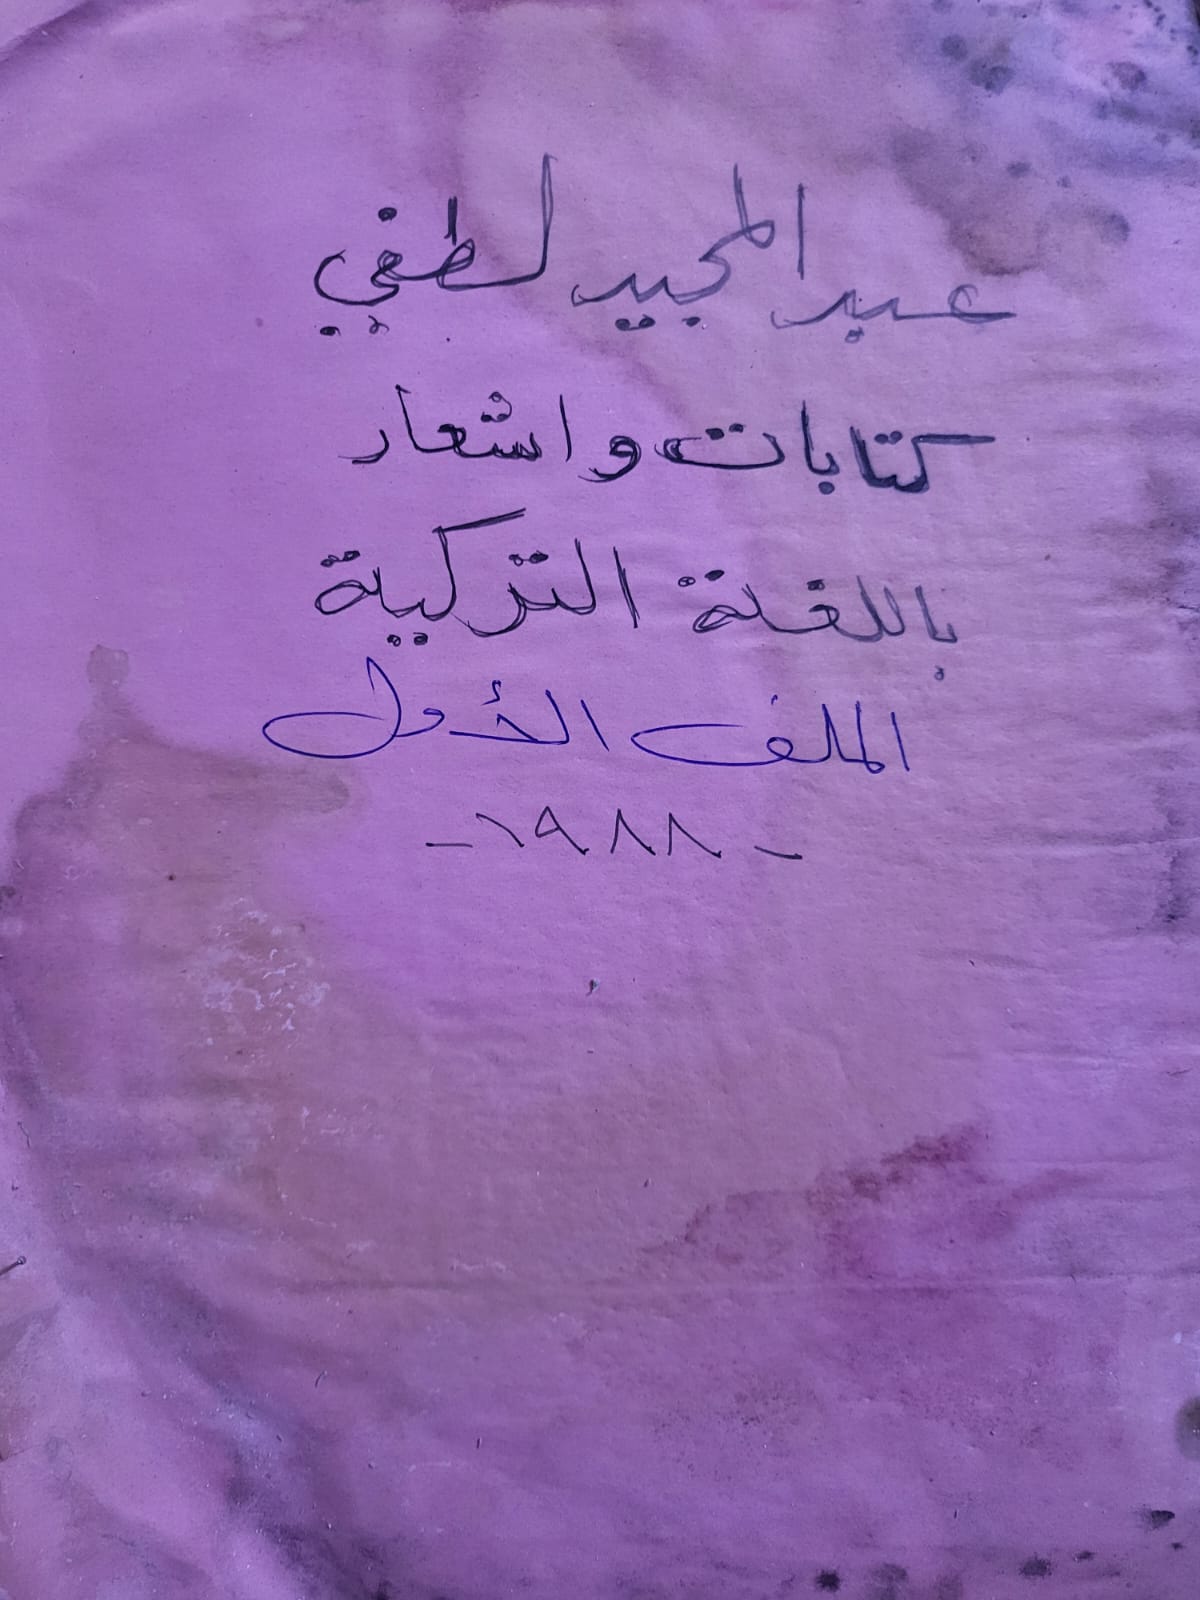 عبد المجيد لطفي
كتابات واشعار
باللغة التركية
الملف الأول
- ١٩٨٨ -